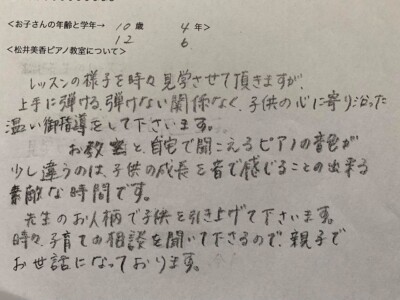 <お子さんの年齢と学年→ 10歳 4年>
12 6
<松井美香ピアノ教室について>
レッスンの様子を時々見学させて頂きますが、
上手に弾ける、弾けない関係なく、子供の心に寄り沿った
温い御指導をして下さいます。
お教室と、自宅で聞こえるピアノの音色が
少し違うのは、子供の成長を音で感じることの出来る
素敵な時間です。
先生のお人柄で子供を引き上げて下さいます。
時々、子育ての相談を聞いて下さるので、親子で
お世話になっております。